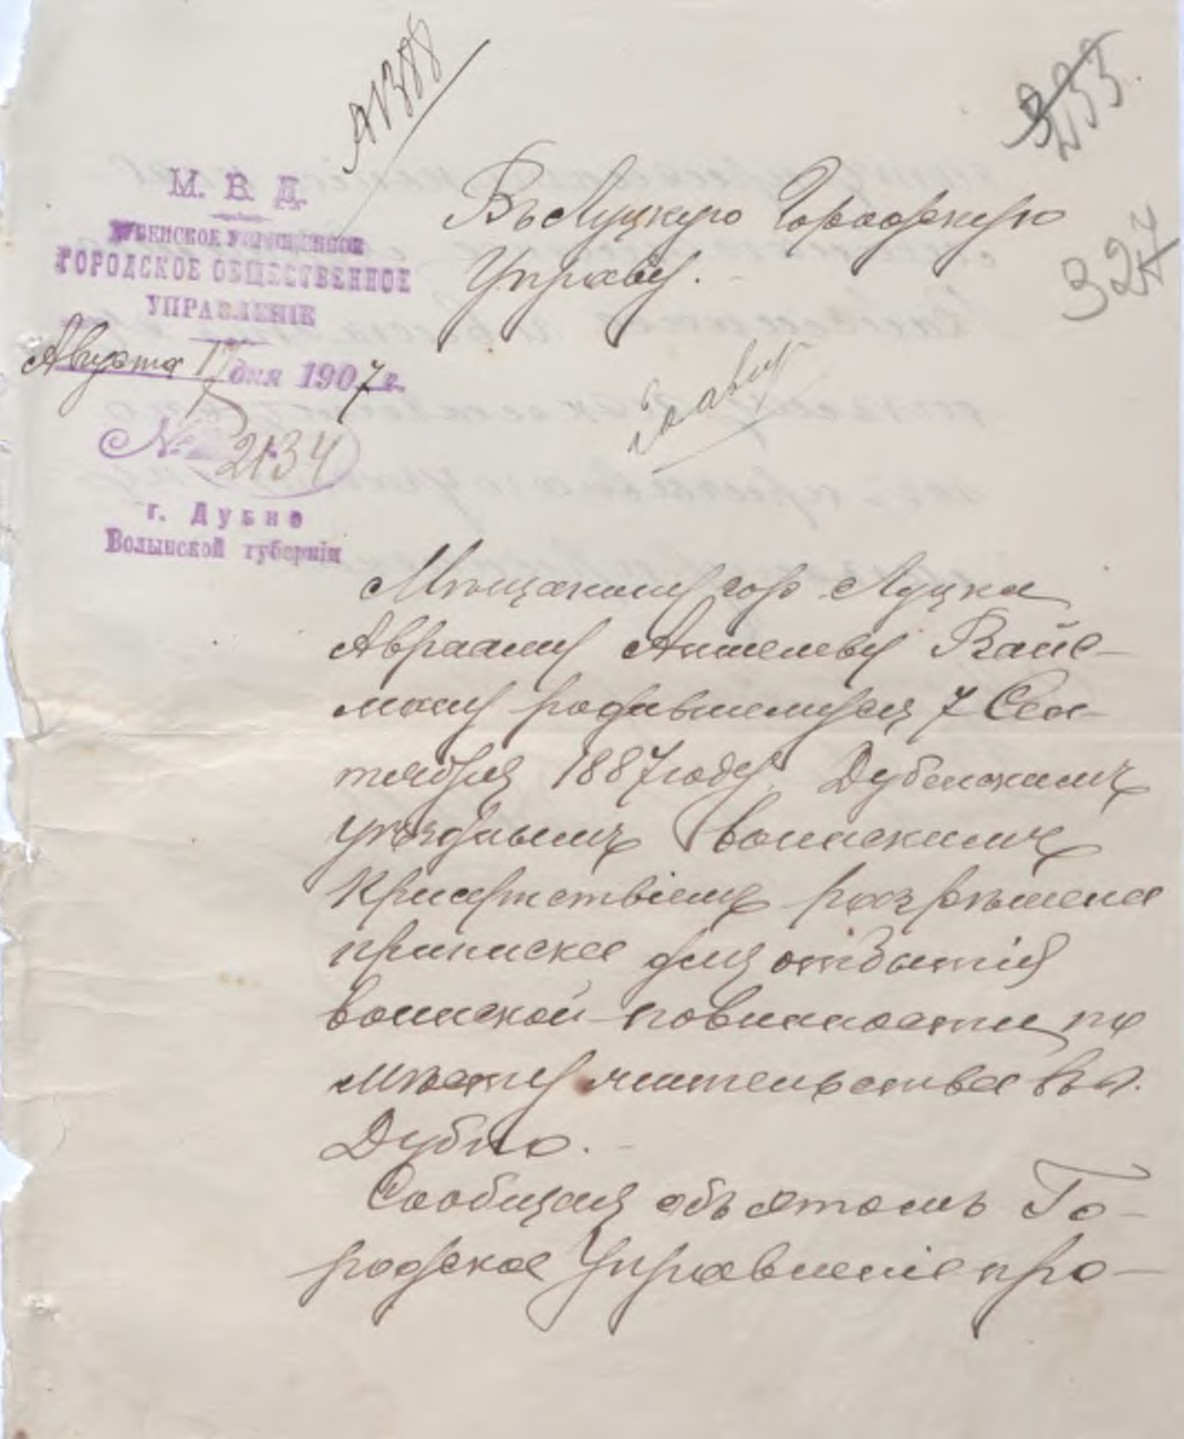 А1388
3233
324
М. В. Д.
ДУБЕНСКОЕ УПРОЩЕННОЕ
ГОРОДСКОЕ ОБЩЕСТВЕННОЕ
УПРАВЛЕНІЕ
Августа 17 дня 1907 г.
№ 2134
г. Дубно
Волынской губерніи
Въ Луцкую Городскую
Управу.
Мѣщанину гор. Луцка
Аврааму Аншелеву Вайс-
ману родившемуся 7 Сен-
тября 1887 году, Дубенскимъ
уѣзднымъ воинскимъ
Присутствіемъ разрѣшена
приписка для отбытія
воинской повинности по
мѣсту жительства въ г.
Дубно.
Сообщая объ этомъ Го-
родское Управленіе про-